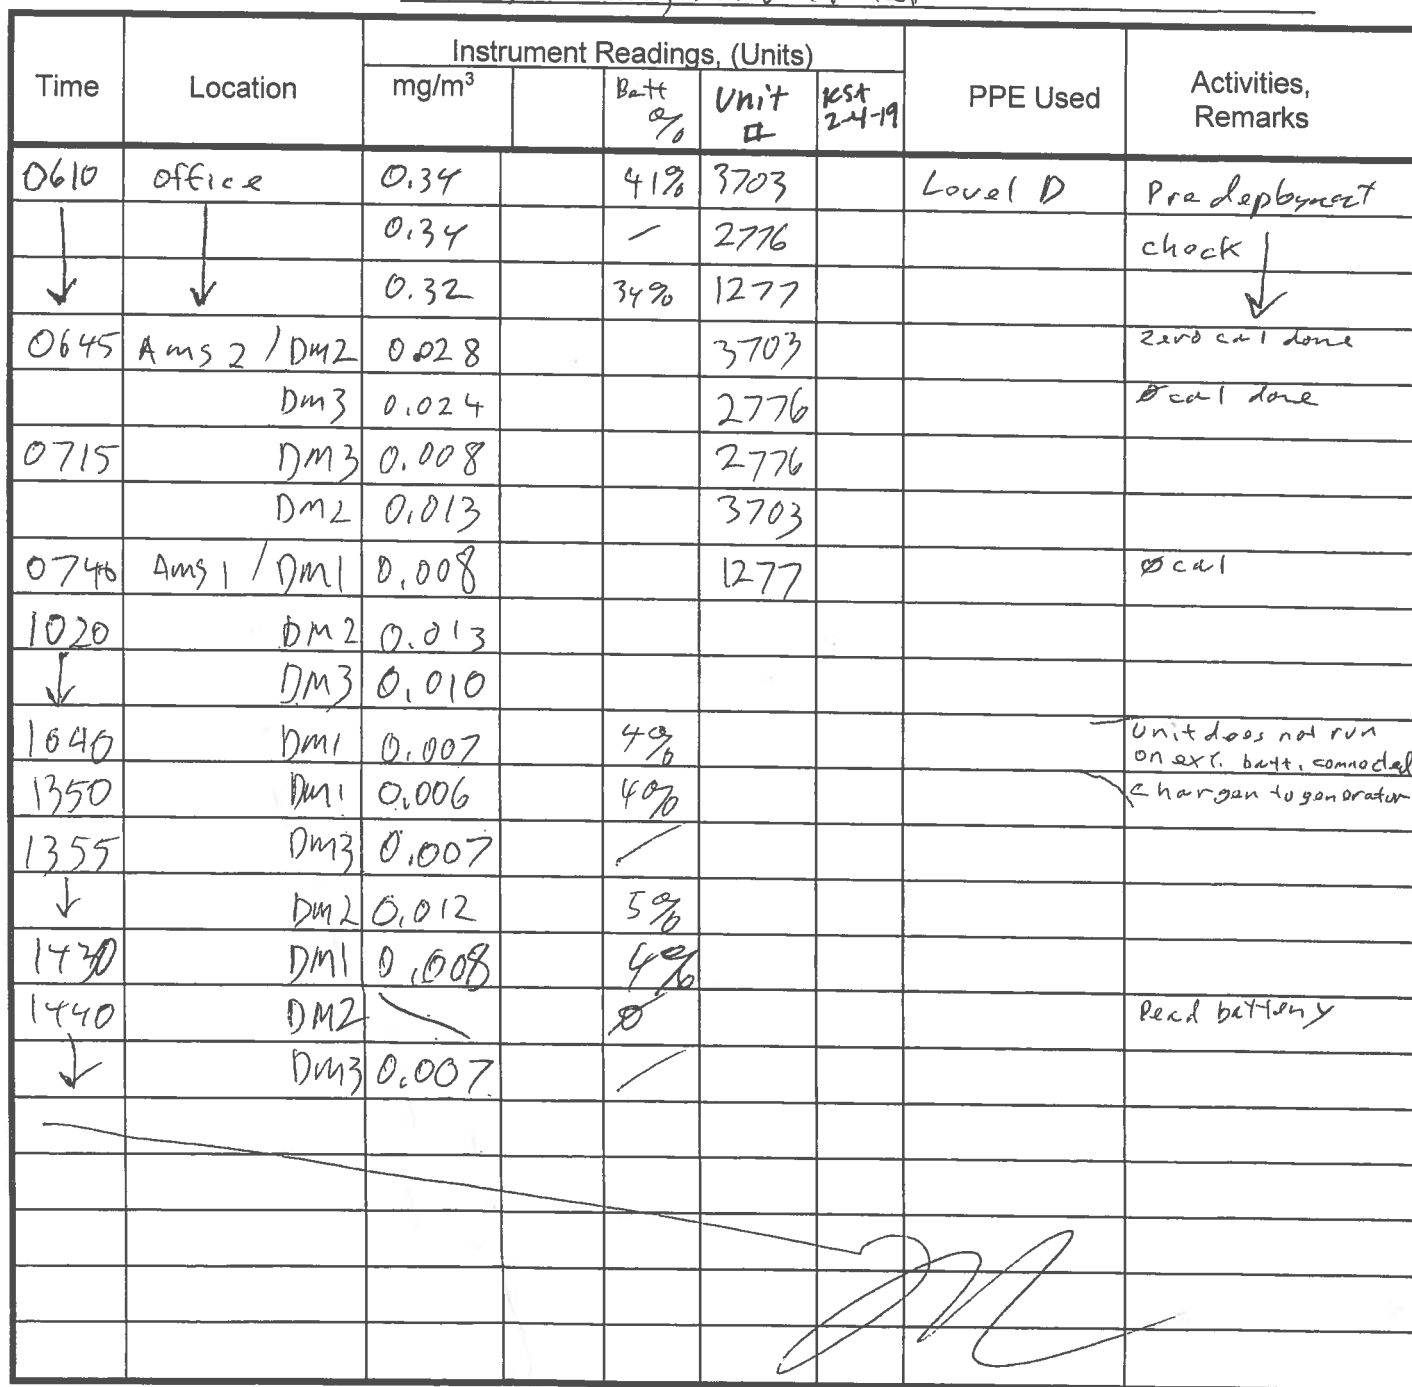 Instrument Readings, (Units)
Time Location mg/m³ Batt % Unit # KSA 2-4-19 PPE Used Activities, Remarks
0610 office 0.34 41% 3703 Level D Predeployment
0.34 / 2776 check
0.32 34% 1277
0645 Ams 2 / DM2 0.028 3703 zero cal done
DM3 0.024 2776 Ø cal done
0715 DM3 0.008 2776
DM2 0.013 3703
0740 Ams 1 / DM1 0.008 1277 Ø cal
1020 DM2 0.013
DM3 0.010
1040 DM1 0.007 4% Unit does not run
on ext. batt, connected
1350 DM1 0.006 40% charger to generator
1355 DM3 0.007 /
DM2 0.012 5%
1430 DM1 0.008 4%
1440 DM2 \ Ø Dead battery
DM3 0.007 /